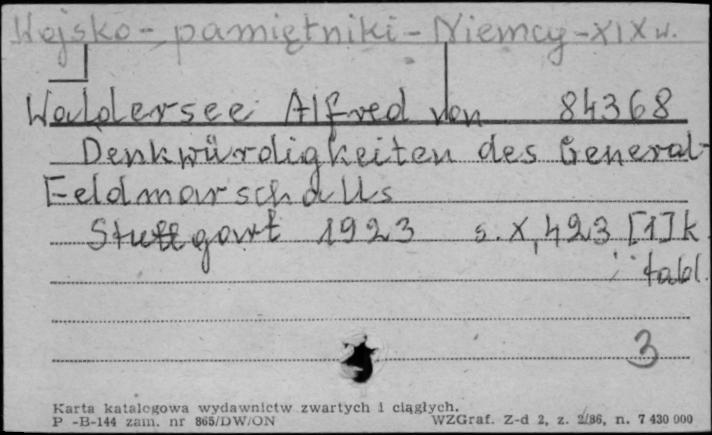 Wojsko - pamiętniki - Niemcy - XIX w.
Waldersee Alfred von 84368
Denkwürdigkeiten des General-
Feldmarschalls
Stuttgart 1923 s. X, 423 [1] k
tabl.
3
Karta katalogowa wydawnictw zwartych i ciągłych.
P -B-144 zam. nr 865/DW/ON WZGraf. Z-d 2, z. 2/86, n. 7 430 000